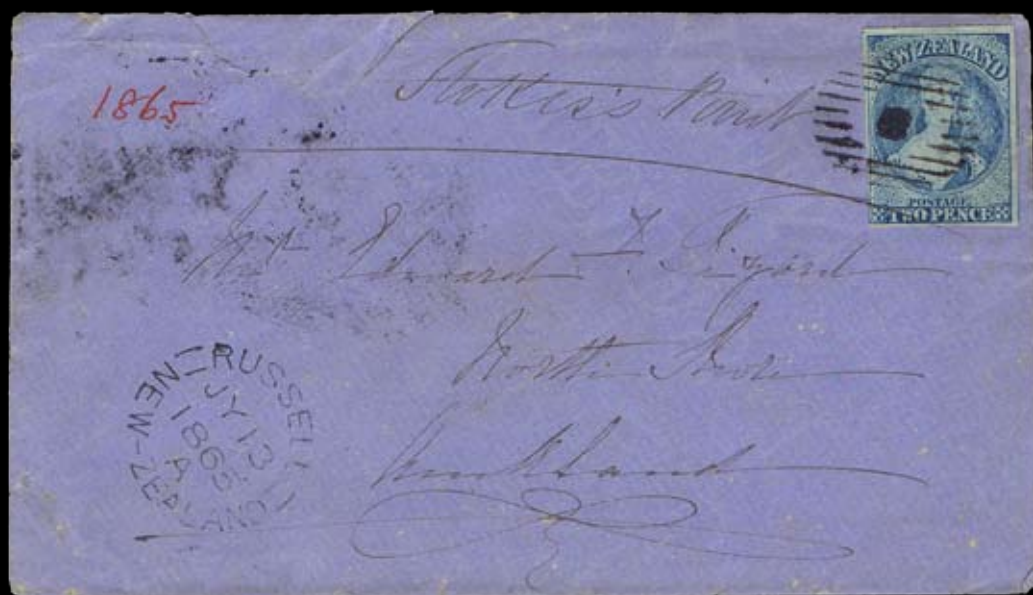 1865
Stokes's Point
NEW ZEALAND
POSTAGE
TWO PENCE
Mr Edward
North Shore
Auckland
RUSSELL
JY 13
1865
A
NEW-ZEALAND